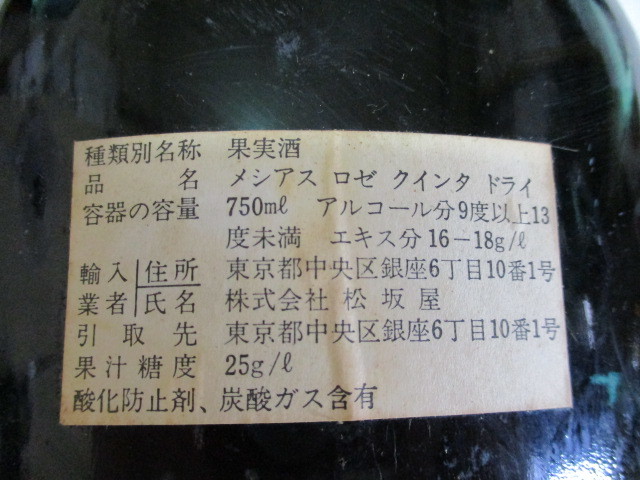 種類別名称 果実酒
品名 メシアス ロゼ クインタ ドライ
容器の容量 750ml アルコール分9度以上13
度未満 エキス分16-18g/l
輸入 住所 東京都中央区銀座6丁目10番1号
業者 氏名 株式会社 松坂屋
引取先 東京都中央区銀座6丁目10番1号
果汁糖度 25g/l
酸化防止剤、炭酸ガス含有